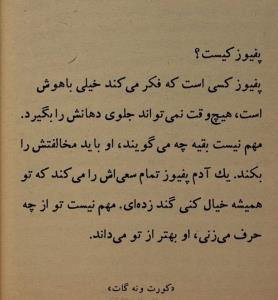 پفیوز کیست؟
پفیوز کسی است که فکر می‌کند خیلی باهوش
است، هیچ‌وقت نمی‌تواند جلوی دهانش را بگیرد.
مهم نیست بقیه چه می‌گویند، او باید مخالفتش را
بکند. یك آدم پفیوز تمام سعی‌اش را می‌کند که تو
همیشه خیال کنی گند زده‌ای. مهم نیست تو از چه
حرف می‌زنی، او بهتر از تو می‌داند.
«کورت ونه گات»